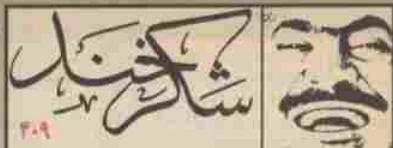 شکرخند
۴۰۹